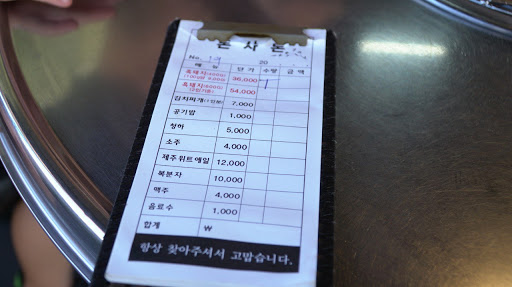 돈 사 돈
No. 20
메 뉴 단 가 수 량 금 액
흑돼지(400G) 36,000
흑돼지(600G) 54,000
김치찌개(1인분) 7,000
공기밥 1,000
청하 5,000
소주 4,000
제주위트에일 12,000
복분자 10,000
맥주 4,000
음료수 1,000
합계 ₩
항상 찾아주셔서 고맙습니다.